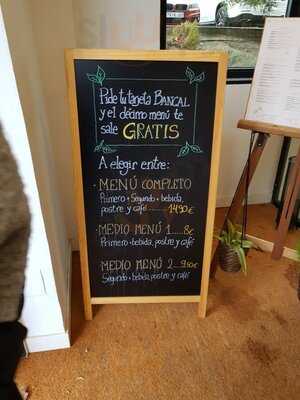 Pide tu tarjeta BANCAL
y el décimo menú te
sale GRATIS
A elegir entre:
· MENÚ COMPLETO
Primero + Segundo + bebida,
postre y café ........ 14'90€
· MEDIO MENÚ 1.......8€
Primero + bebida, postre y café
· MEDIO MENÚ 2...9'50€
Segundo + bebida, postre y café